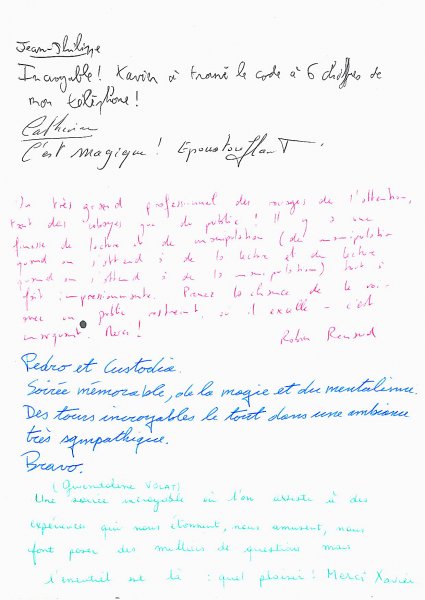 Jean-Philippe
Incroyable! Xavier à trouvé le code à 6 chiffres de
mon téléphone!
Catherine
C'est magique! Epoustouflant.
Un très grand professionnel des nuages de l'attention,
tant des que du public! Il y a une
finesse de lecture et de manipulation (de manipulation
quand on s'attend à de la lecture et de lecture
quand on s'attend à de la manipulation) tout à
fait impressionnante. Prenez la chance de le voir
avec un public restreint, où il excelle - c'est
. Merci!
Robin Renaud
Pedro et Custodia.
Soirée mémorable, de la magie et du mentalisme.
Des tours incroyables le tout dans une ambiance
très sympathique.
Bravo.
(Gwendoline VOLAT)
Une soirée incroyable où l'on assiste à des
expériences qui nous étonnent, nous amusent, nous
font poser des milliers de questions mais
l'essentiel est là : quel plaisir! Merci Xavier